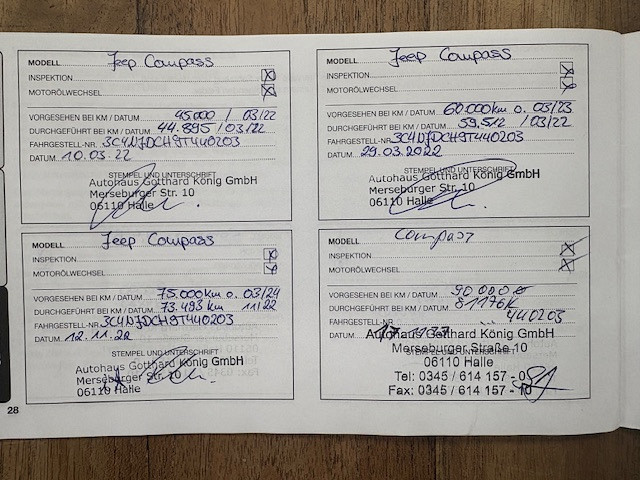 MODELL Jeep Compass
INSPEKTION
MOTORÖLWECHSEL
VORGESEHEN BEI KM / DATUM 45.000 / 03/22
DURCHGEFÜHRT BEI KM / DATUM 44.895 / 03/22
FAHRGESTELL-NR 3C4NJDCH9JT440203
DATUM 10.03.22
STEMPEL UND UNTERSCHRIFT
Autohaus Gotthard König GmbH
Merseburger Str. 10
06110 Halle
MODELL Jeep Compass
INSPEKTION
MOTORÖLWECHSEL
VORGESEHEN BEI KM / DATUM 60.000km o. 03/23
DURCHGEFÜHRT BEI KM / DATUM 59.512 / 03/22
FAHRGESTELL-NR 3C4NJDCH9JT440203
DATUM 29.03.2022
STEMPEL UND UNTERSCHRIFT
Autohaus Gotthard König GmbH
Merseburger Str. 10
06110 Halle
MODELL Jeep Compass
INSPEKTION
MOTORÖLWECHSEL
VORGESEHEN BEI KM / DATUM 75.000km o. 03/24
DURCHGEFÜHRT BEI KM / DATUM 73.493 km 11/22
FAHRGESTELL-NR 3C4NJDCH9JT440203
DATUM 12.11.22
STEMPEL UND UNTERSCHRIFT
Autohaus Gotthard König GmbH
Merseburger Str. 10
06110 Halle
MODELL Compass
INSPEKTION
MOTORÖLWECHSEL
VORGESEHEN BEI KM / DATUM 90000
DURCHGEFÜHRT BEI KM / DATUM 81176K
FAHRGESTELL-NR 440203
Autohaus Gotthard König GmbH
Merseburger Straße 10
STEMPEL UND UNTERSCHRIFT
06110 Halle
Tel: 0345 / 614 157 - 0
Fax: 0345 / 614 157 - 10
28